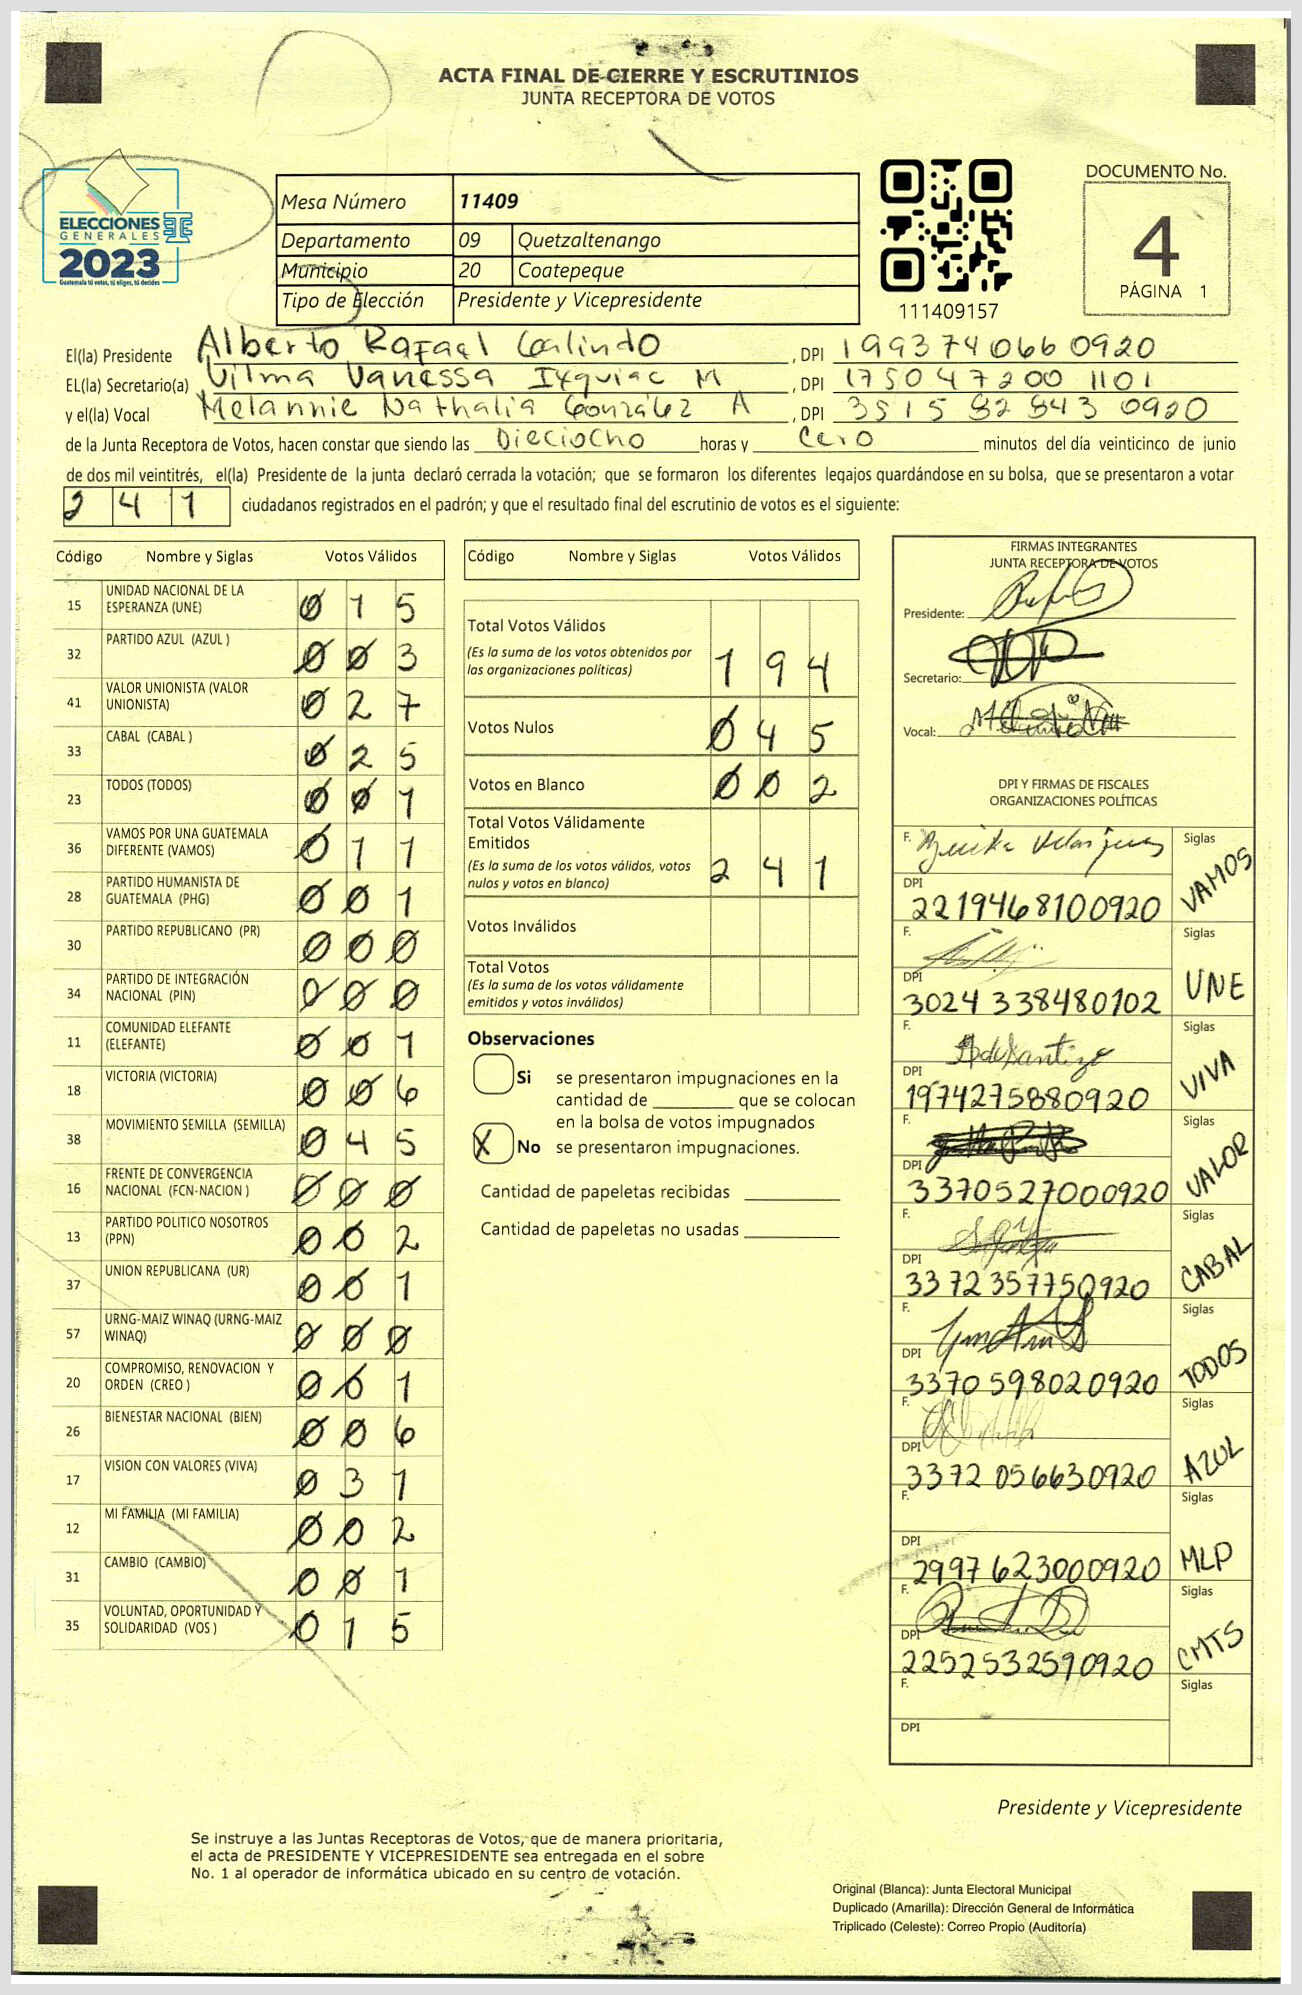 ACTA FINAL DE CIERRE Y ESCRUTINIOS
JUNTA RECEPTORA DE VOTOS
ELECCIONES
GENERALES
2023
Guatemala tú votas, tú eliges, tú decides
Mesa Número 11409
Departamento 09 Quetzaltenango
Municipio 20 Coatepeque
Tipo de Elección Presidente y Vicepresidente
111409157
DOCUMENTO No.
4
PÁGINA 1
El(la) Presidente Alberto Rafael Galindo , DPI 1993740660920
EL(la) Secretario(a) Vilma Vanessa Ixquiac M , DPI 175047200 1101
y el(la) Vocal Melannie Nathalia González A , DPI 3515 82843 0920
de la Junta Receptora de Votos, hacen constar que siendo las Dieciocho horas y Cero minutos del día veinticinco de junio
de dos mil veintitrés, el(la) Presidente de la junta declaró cerrada la votación; que se formaron los diferentes legajos guardándose en su bolsa, que se presentaron a votar
2 4 1 ciudadanos registrados en el padrón; y que el resultado final del escrutinio de votos es el siguiente:
Código Nombre y Siglas Votos Válidos
15 UNIDAD NACIONAL DE LA ESPERANZA (UNE) 0 1 5
32 PARTIDO AZUL (AZUL ) 0 0 3
41 VALOR UNIONISTA (VALOR UNIONISTA) 0 2 7
33 CABAL (CABAL ) 0 2 5
23 TODOS (TODOS) 0 0 1
36 VAMOS POR UNA GUATEMALA DIFERENTE (VAMOS) 0 1 1
28 PARTIDO HUMANISTA DE GUATEMALA (PHG) 0 0 1
30 PARTIDO REPUBLICANO (PR) 0 0 0
34 PARTIDO DE INTEGRACIÓN NACIONAL (PIN) 0 0 0
11 COMUNIDAD ELEFANTE (ELEFANTE) 0 0 1
18 VICTORIA (VICTORIA) 0 0 6
38 MOVIMIENTO SEMILLA (SEMILLA) 0 4 5
16 FRENTE DE CONVERGENCIA NACIONAL (FCN-NACION ) 0 0 0
13 PARTIDO POLITICO NOSOTROS (PPN) 0 0 2
37 UNION REPUBLICANA (UR) 0 0 1
57 URNG-MAIZ WINAQ (URNG-MAIZ WINAQ) 0 0 0
20 COMPROMISO, RENOVACION Y ORDEN (CREO ) 0 0 1
26 BIENESTAR NACIONAL (BIEN) 0 0 6
17 VISION CON VALORES (VIVA) 0 3 1
12 MI FAMILIA (MI FAMILIA) 0 0 2
31 CAMBIO (CAMBIO) 0 0 1
35 VOLUNTAD, OPORTUNIDAD Y SOLIDARIDAD (VOS ) 0 1 5
Código Nombre y Siglas Votos Válidos
Total Votos Válidos 1 9 4
(Es la suma de los votos obtenidos por
las organizaciones políticas)
Votos Nulos 0 4 5
Votos en Blanco 0 0 2
Total Votos Válidamente
Emitidos 2 4 1
(Es la suma de los votos válidos, votos
nulos y votos en blanco)
Votos Inválidos
Total Votos
(Es la suma de los votos válidamente
emitidos y votos inválidos)
Observaciones
Si se presentaron impugnaciones en la
cantidad de ________ que se colocan
en la bolsa de votos impugnados
X No se presentaron impugnaciones.
Cantidad de papeletas recibidas
Cantidad de papeletas no usadas
FIRMAS INTEGRANTES
JUNTA RECEPTORA DE VOTOS
Presidente:
Secretario:
Vocal:
DPI Y FIRMAS DE FISCALES
ORGANIZACIONES POLÍTICAS
F. Siglas VAMOS
DPI 2219468100920
F. Siglas UNE
DPI 3024 338480102
F. Siglas VIVA
DPI 1974275880920
F. Siglas VALOR
DPI 3370527000920
F. Siglas CABAL
DPI 3372357750920
F. Siglas TODOS
DPI 3370598020920
F. Siglas AZUL
DPI 3372 056630920
F. Siglas MLP
DPI 2997623000920
F. Siglas CMTS
DPI 2252532590920
F. Siglas
DPI
Presidente y Vicepresidente
Se instruye a las Juntas Receptoras de Votos, que de manera prioritaria,
el acta de PRESIDENTE Y VICEPRESIDENTE sea entregada en el sobre
No. 1 al operador de informática ubicado en su centro de votación.
Original (Blanca): Junta Electoral Municipal
Duplicado (Amarilla): Dirección General de Informática
Triplicado (Celeste): Correo Propio (Auditoría)